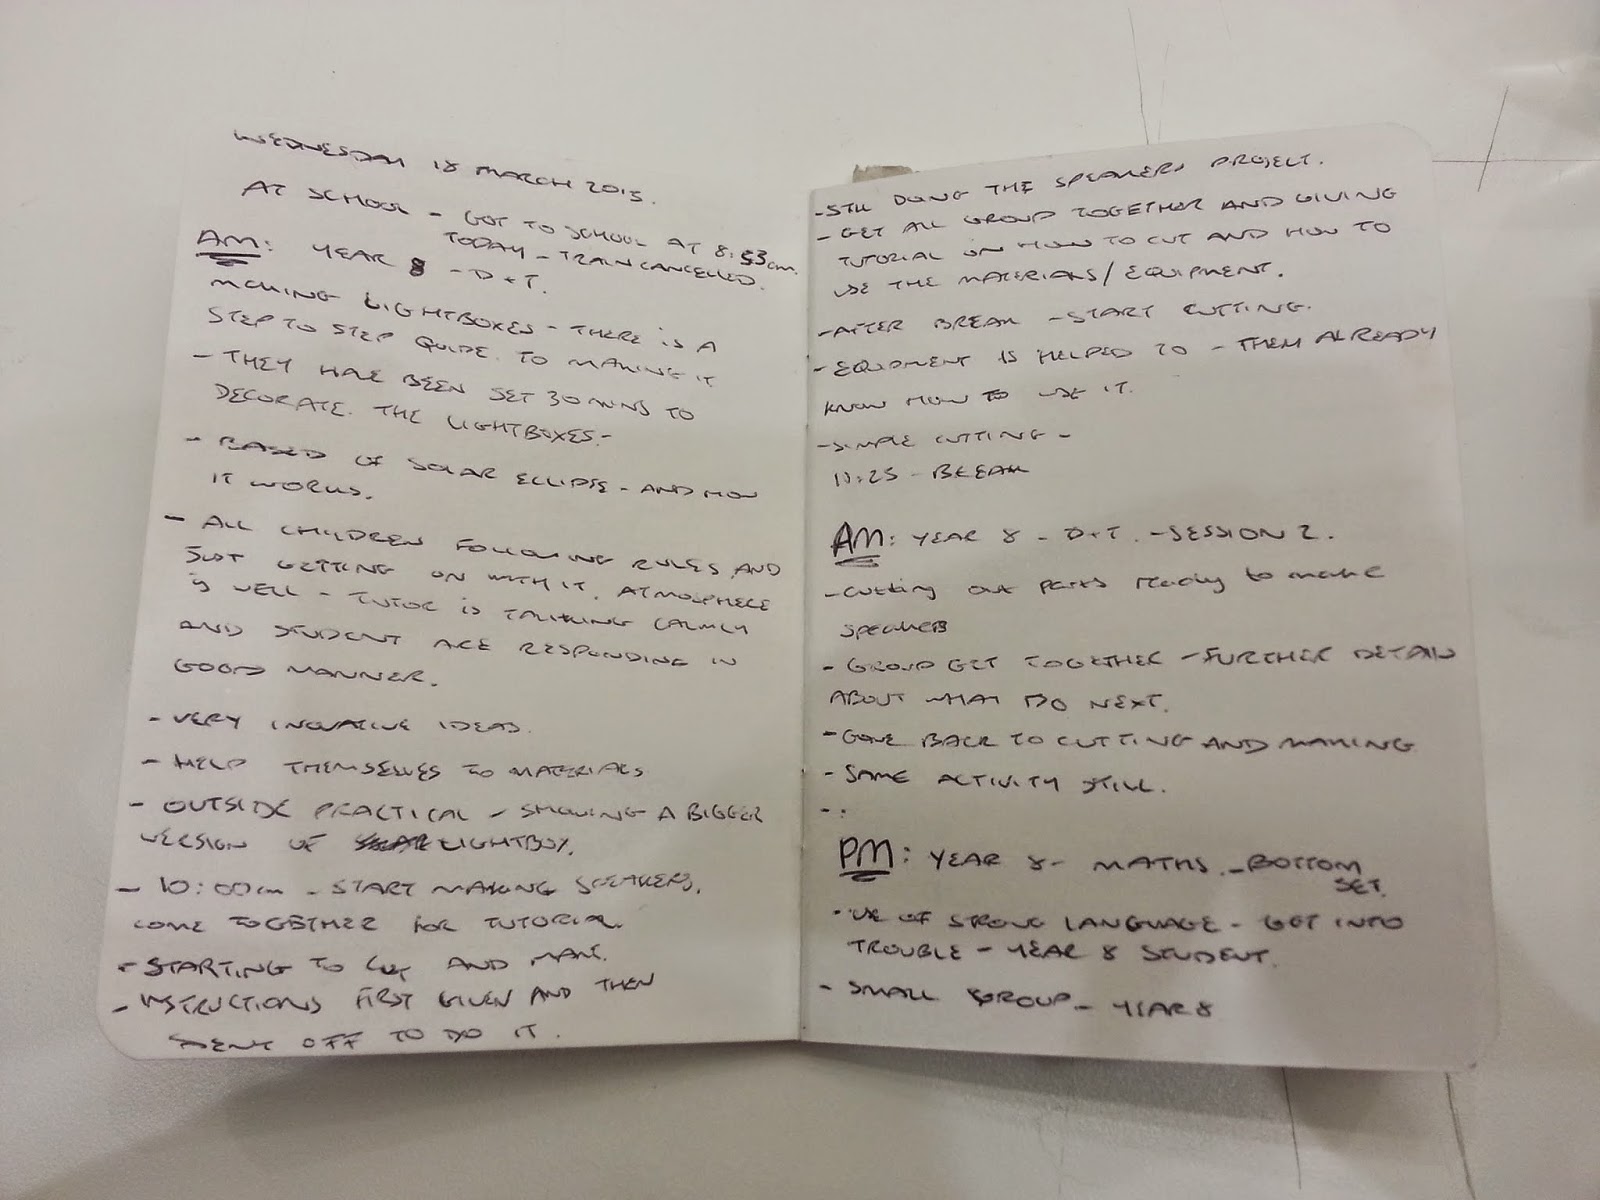 WEDNESDAY 18 MARCH 2015.
AT SCHOOL - GOT TO SCHOOL AT 8:53am
TODAY - TRAIN CANCELLED.
AM: YEAR 8 - D+T.
MAKING LIGHTBOXES - THERE IS A
STEP TO STEP GUIDE TO MAKING IT
- THEY HAVE BEEN SET 30 MINS TO
DECORATE THE LIGHTBOXES.
- BASED OF SOLAR ECLIPSE - AND HOW
IT WORKS.
- ALL CHILDREN FOLLOWING RULES AND
JUST GETTING ON WITH IT. ATMOSPHERE
IS WELL - TUTOR IS TALKING CALMLY
AND STUDENT ARE RESPONDING IN
GOOD MANNER.
- VERY INOVATIVE IDEAS.
- HELP THEMSELVES TO MATERIALS
- OUTSIDE PRACTICAL - SHOWING A BIGGER
VERSION OF LIGHTBOX.
- 10:00am - START MAKING SPEAKERS.
COME TOGETHER FOR TUTORIAL.
- STARTING TO CUT AND MAKE.
- INSTRUCTIONS FIRST GIVEN AND THEN
SENT OFF TO DO IT.
- STILL DOING THE SPEAKERS PROJECT.
- GET ALL GROUP TOGETHER AND GIVING
TUTORIAL ON HOW TO CUT AND HOW TO
USE THE MATERIALS/EQUIPMENT.
- AFTER BREAK - START CUTTING.
- EQUIPMENT IS HELPED TO - THEM ALREADY
KNOW HOW TO USE IT.
- SIMPLE CUTTING -
11:25 - BREAK
AM: YEAR 8 - D+T. - SESSION 2.
- cutting out parts ready to make
speakers
- GROUP GET TOGETHER - FURTHER DETAIL
ABOUT WHAT DO NEXT.
- GONE BACK TO CUTTING AND MAKING
- SAME ACTIVITY STILL.
- .
PM: YEAR 8 - MATHS. - BOTTOM
SET.
- USE OF STRONG LANGUAGE - GET INTO
TROUBLE - YEAR 8 STUDENT.
- SMALL GROUP - YEAR 8